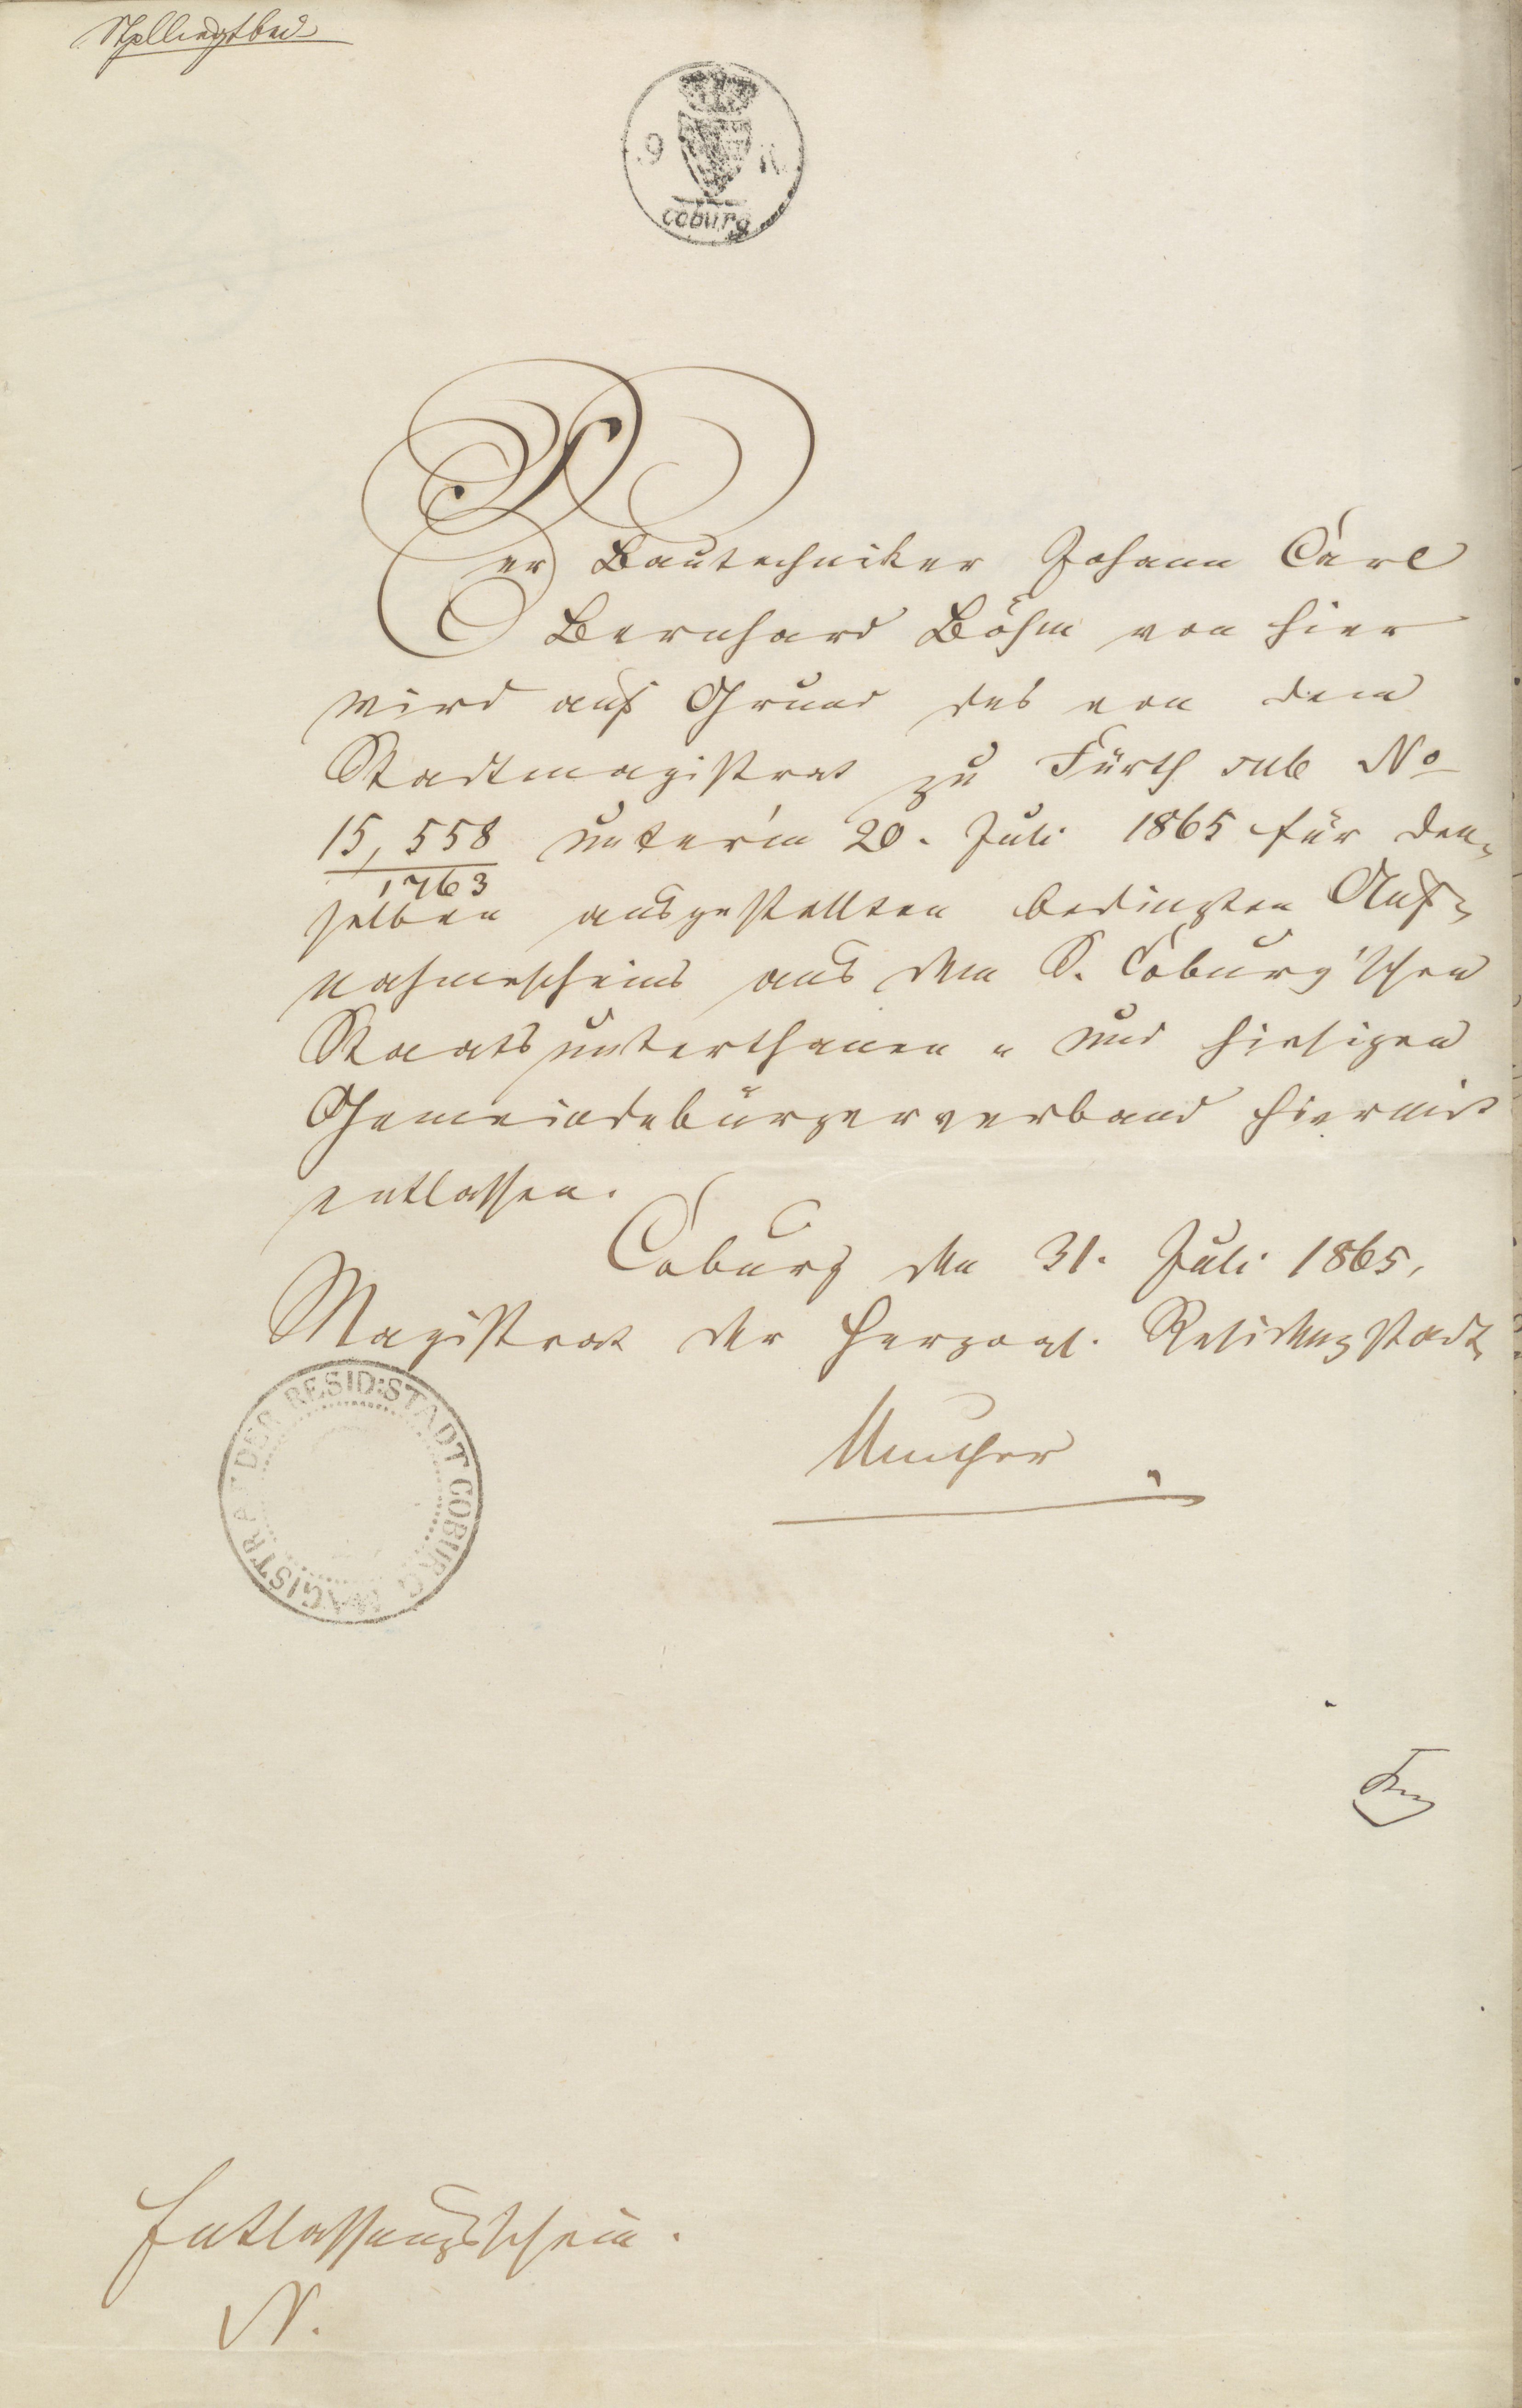 9 K
coburg
Der Bautechniker Johann Carl
Bernhard Böhm von hier
wird auf Grund des von dem
Stadtmagistrat zu Fürth sub No
15,558/1763 unter'm 20. Juli 1865 für den-
selben ausgestellten bedingten Auf-
nahmescheins aus dem S. Coburg'schen
Staatsunterthanen- und hiesigen
Gemeindebürgerverband hiermit
entlassen.
Coburg den 31. Juli 1865.
Magistrat der Herzogl. Residenzstadt
Muther
MAGISTRAT DER RESID:STADT COBURG
Entlassungsschein.
N.